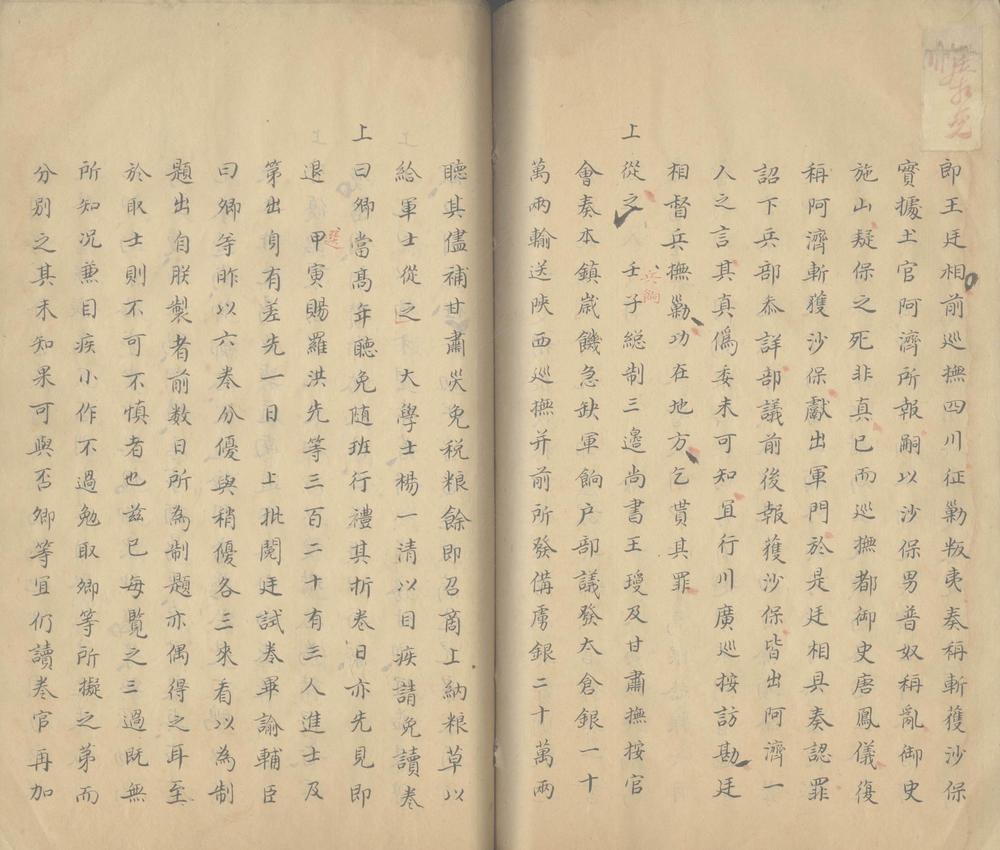 郎王廷相前巡撫四川征勦叛夷奏稱斬獲沙保
實據土官阿濟所報嗣以沙保男普奴稱亂御史
施山疑保之死非真已而巡撫都御史唐鳳儀復
稱阿濟斬獲沙保獻出軍門於是廷相具奏認罪
詔下兵部叅詳部議前後報獲沙保皆出阿濟一
人之言其真僞委未可知宜行川廣巡按訪勘廷
相督兵撫勦功在地方乞貰其罪
上從之 壬子總制三邊尚書王瓊及甘肅撫按官
兵餉
會奏本鎮歲饑急缺軍餉户部議發太倉銀一十
萬兩輸送陝西巡撫并前所發備虜銀二十萬兩
聽其儘補甘肅災免税粮餘即召商上納粮草以
給軍士從之 大學士楊一清以目疾請免讀卷
上曰卿當髙年聽免随班行禮其折卷日亦先見即
退 甲寅賜羅洪先等三百二十有三人進士及
第出身有差先一日 上批閲廷試卷畢諭輔臣
曰卿等昨以六卷分優與稍優各三來看以為制
題出自朕製者前数日所為制題亦偶得之耳至
於取士則不可不慎者也兹已每覽之三過既無
所知况兼目疾小作不過勉取卿等所擬之第而
分别之其未知果可與否卿等宜仍讀卷官再加